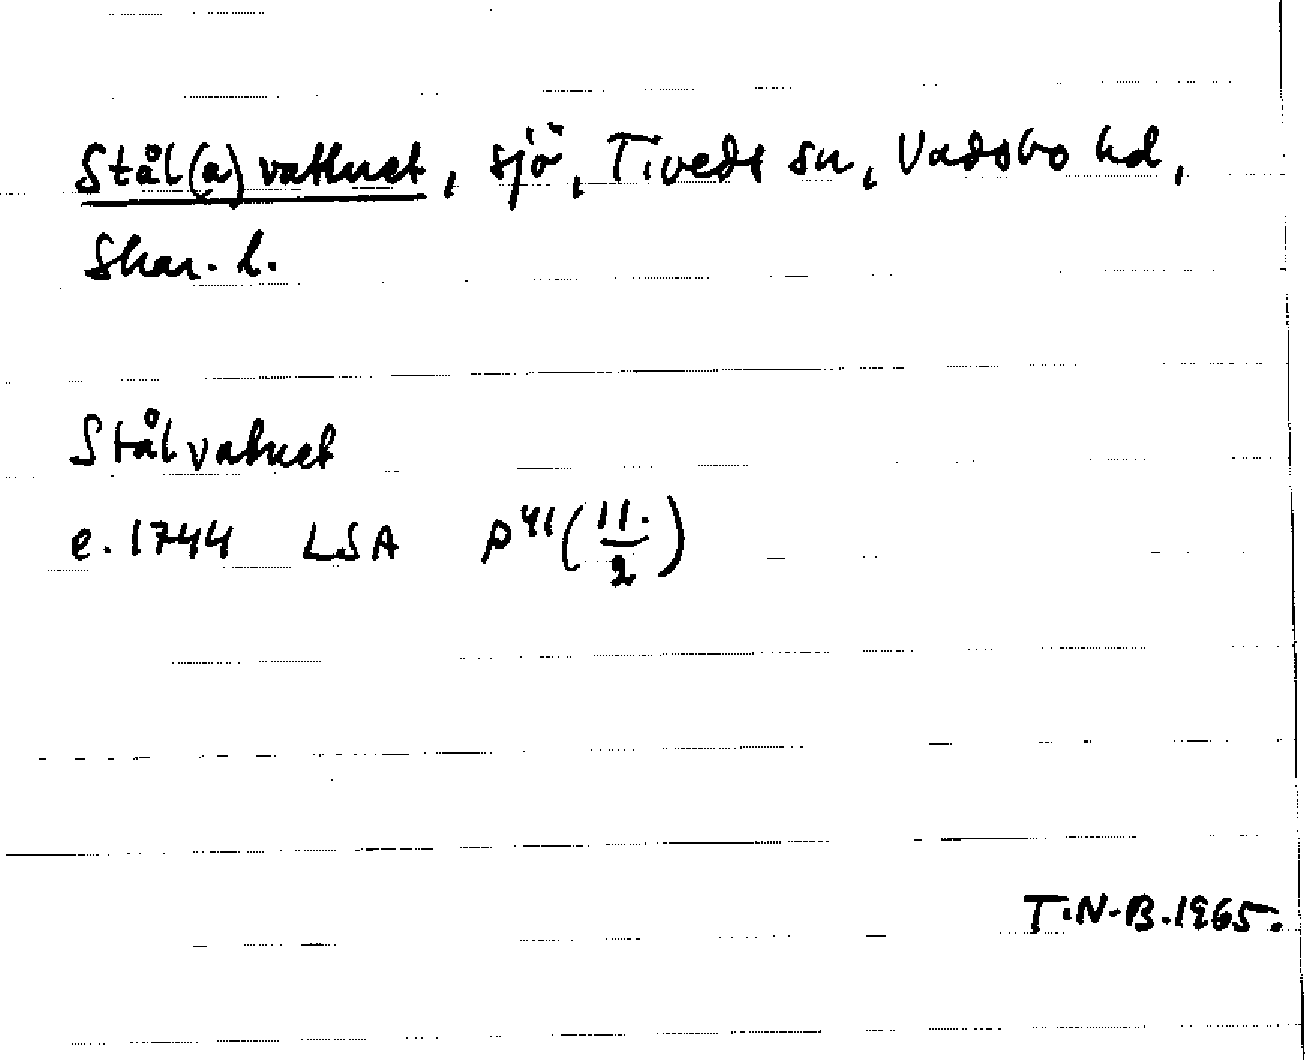 Stål(a)vattnet, sjö, Tiveds sn, Vadsbo hd,
Skar. l.
Stålvatnet
e. 1744 LSA P41(11./2)
T.N-B.1965.